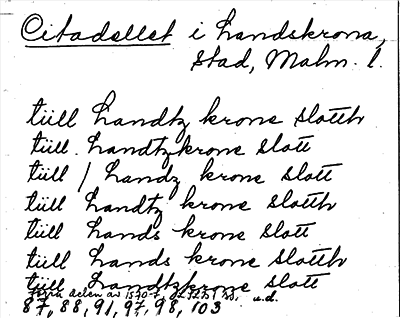 Citadellet i Landskrona,
stad, Malm. l.
tüll Landtz krone slotth
tüll. Landtzkrone slott
tüll / Landz krone slott
tüll Landtz krone slotth
tüll Lands krone slott
tüll Lands krone slotth
tüll Landtzkrone slott
delen av 1570-t. u.d.
87, 88, 91, 97, 98, 103